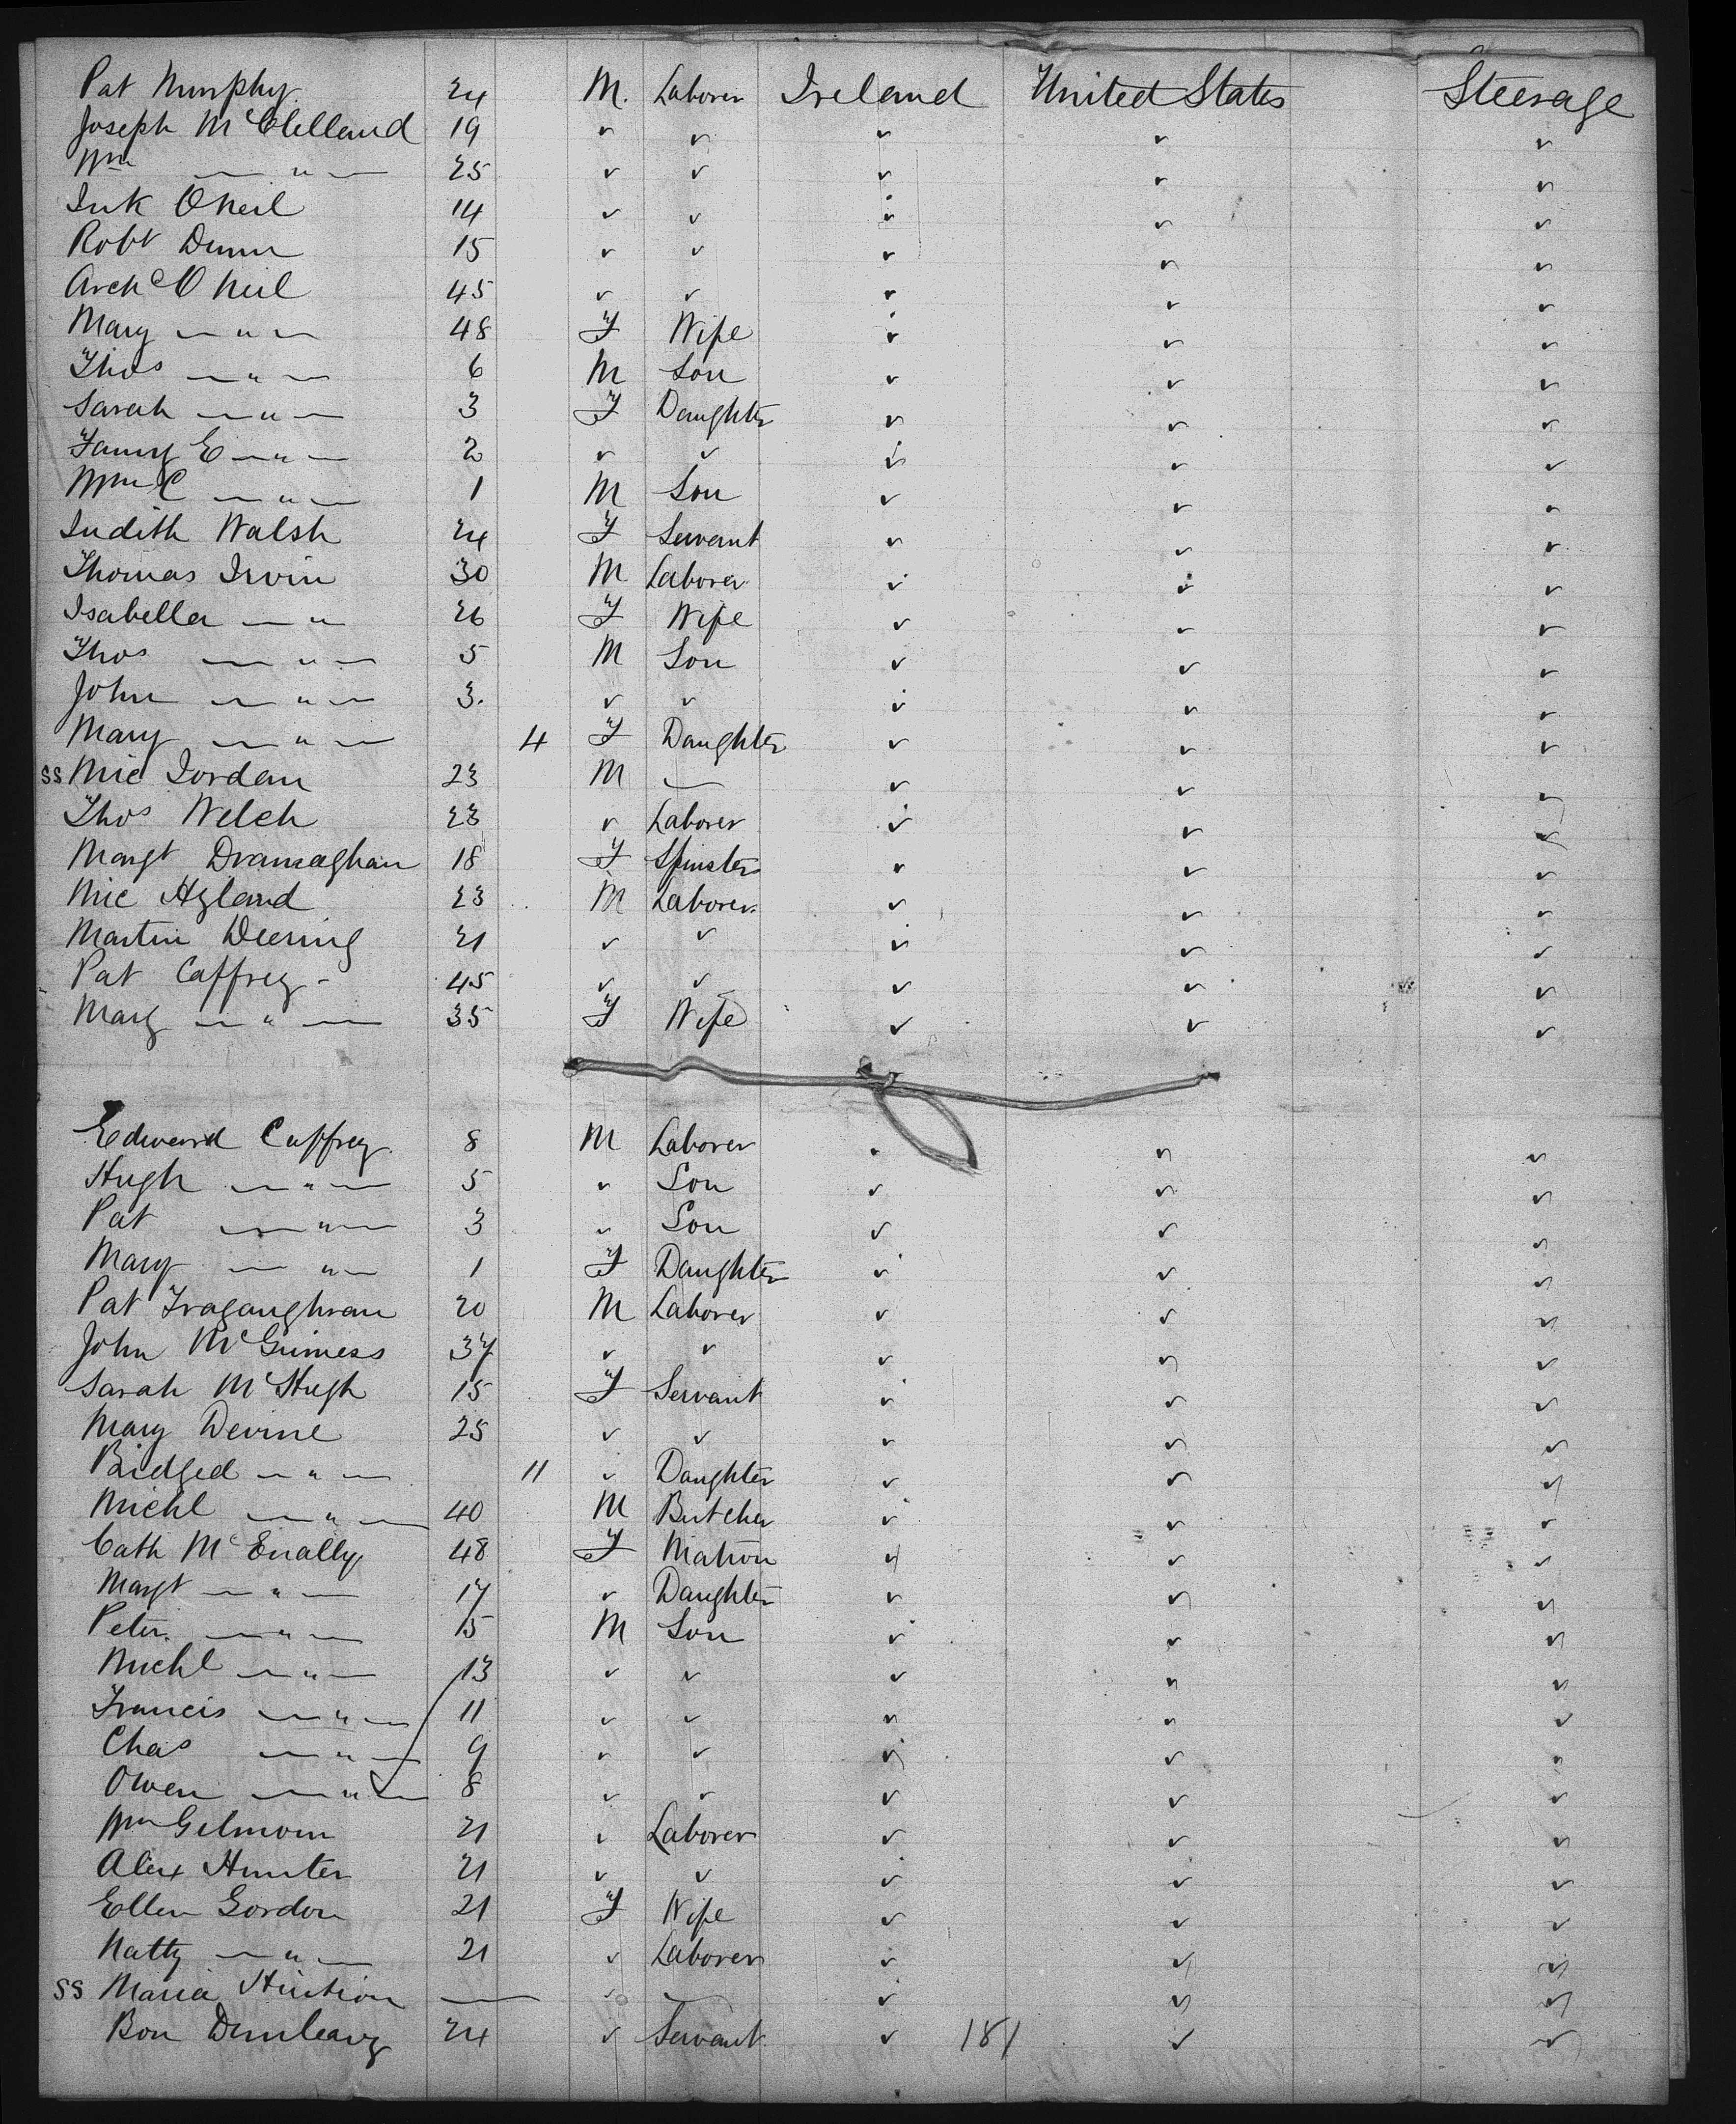 Pat Murphy 24 M. Laborer Ireland United States Steerage
Joseph McClelland 19 " " " " "
Wm — " — 25 " " " " "
Ink O'Neil 14 " " " " "
Robt Dunn 15 " " " " "
Archd O'Neil 45 " " " " "
Mary — " — 48 F Wife " " "
Thos — " — 6 M Son " " "
Sarah — " — 3 F Daughter " " "
Fanny E — " — 2 " " " " "
Wm C — " — 1 M Son " " "
Judith Walsh 24 F Servant " " "
Thomas Irvin 30 M Laborer " " "
Isabella — " 26 F Wife " " "
Thos — " — 5 M Son " " "
John — " — 3. " " " " "
Mary — " — 4 F Daughter " " "
SS Mic Jordan 23 M — " " "
Thos Welch 23 " Laborer " " "
Margt Dramaghan 18 F Spinster " " "
Mic Hyland 23 M Laborer " " "
Martin Deering 21 " " " " "
Pat Caffrey - 45 " " " " "
Mary — " — 35 F Wife " " "
Edward Caffrey 8 M Laborer " " "
Hugh — " — 5 " Son " " "
Pat — " — 3 " Son " " "
Mary — " — 1 F Daughter " " "
Pat Fragaughran 20 M Laborer " " "
John McGuiness 37 " " " " "
Sarah McHugh 15 F Servant " " "
Mary Devine 25 " " " " "
Bridged — " — 11 " Daughter " " "
Michl — " — 40 M Butcher " " "
Cath McEnally 48 F Matron " " "
Margt — " — 17 " Daughter " " "
Peter. — " — 15 M Son " " "
Michl — " — 13 " " " " "
Francis — " — 11 " " " " "
Chas — " — 9 " " " " "
Owen — " — 8 " " " " "
Wm Gilmour 21 " Laborer " " "
Alex Hunter 21 " " " " "
Ellen Gordon 21 F Wife " " "
Natty — " — 21 " Laborer " " "
SS Maria Hustion — " — " " "
Bon Dunleavy 24 " Servant " 181 " "